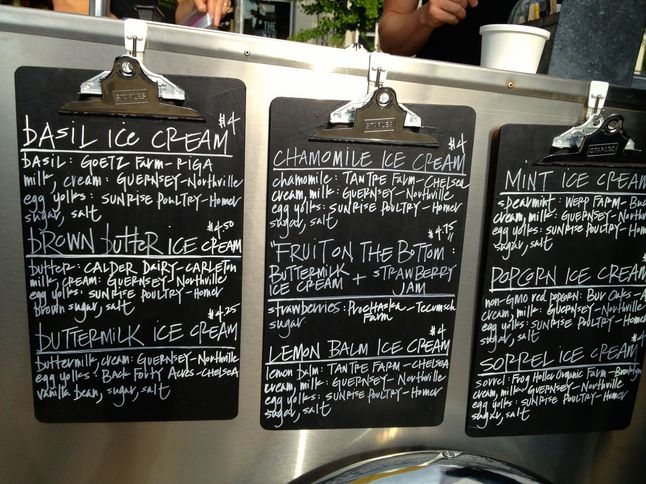 STAPLES
$4
BASIL ICE CREAM
BASIL: GOETZ FARM-RIGA
milk, cream: GUERNSEY-Northville
egg yolks: SUNRISE POULTRY-HOMER
sugar, salt
$4.50
BROWN butter ICE CREAM
butter: CALDER DAIRY-CARLETON
milk, cream: GUERNSEY-Northville
egg yolks: SUNRISE POULTRY-HOMER
Brown sugar, salt
$4.25
BUTTERMILK ICE CREAM
buttermilk, cream: GUERNSEY-Northville
egg yolks: BACK FORTY ACRES-CHELSEA
vanilla bean, sugar, salt
STAPLES
$4
CHAMOMILE ICE CREAM
chamomile: TANTRE FARM-CHELSEA
cream, milk: GUERNSEY-Northville
egg yolks: SUNRISE POULTRY-HOMER
sugar, salt
$4.75
"FRUIT ON THE BOTTOM":
BUTTERMILK ICE CREAM + STRAWBERRY JAM
strawberries: PROCHASKA FARM-TECUMSEH
sugar
$4
LEMON BALM ICE CREAM
lemon balm: TANTRE FARM-CHELSEA
cream, milk: GUERNSEY-Northville
egg yolks: SUNRISE POULTRY-HOMER
sugar, salt
MINT ICE CREAM
spearmint: WERP FARM-
cream, milk: GUERNSEY-
egg yolks: SUNRISE POULTRY-
sugar, salt
POPCORN ICE CREAM
non-GMO red popcorn: BUR OAKS-
cream, milk: GUERNSEY-
egg yolks: SUNRISE POULTRY-
sugar, salt
$4
SORREL ICE CREAM
sorrel: FROG HOLLER ORGANIC FARM-Brooklyn
cream, milk: GUERNSEY-Northville
egg yolks: SUNRISE POULTRY-HOMER
sugar, salt